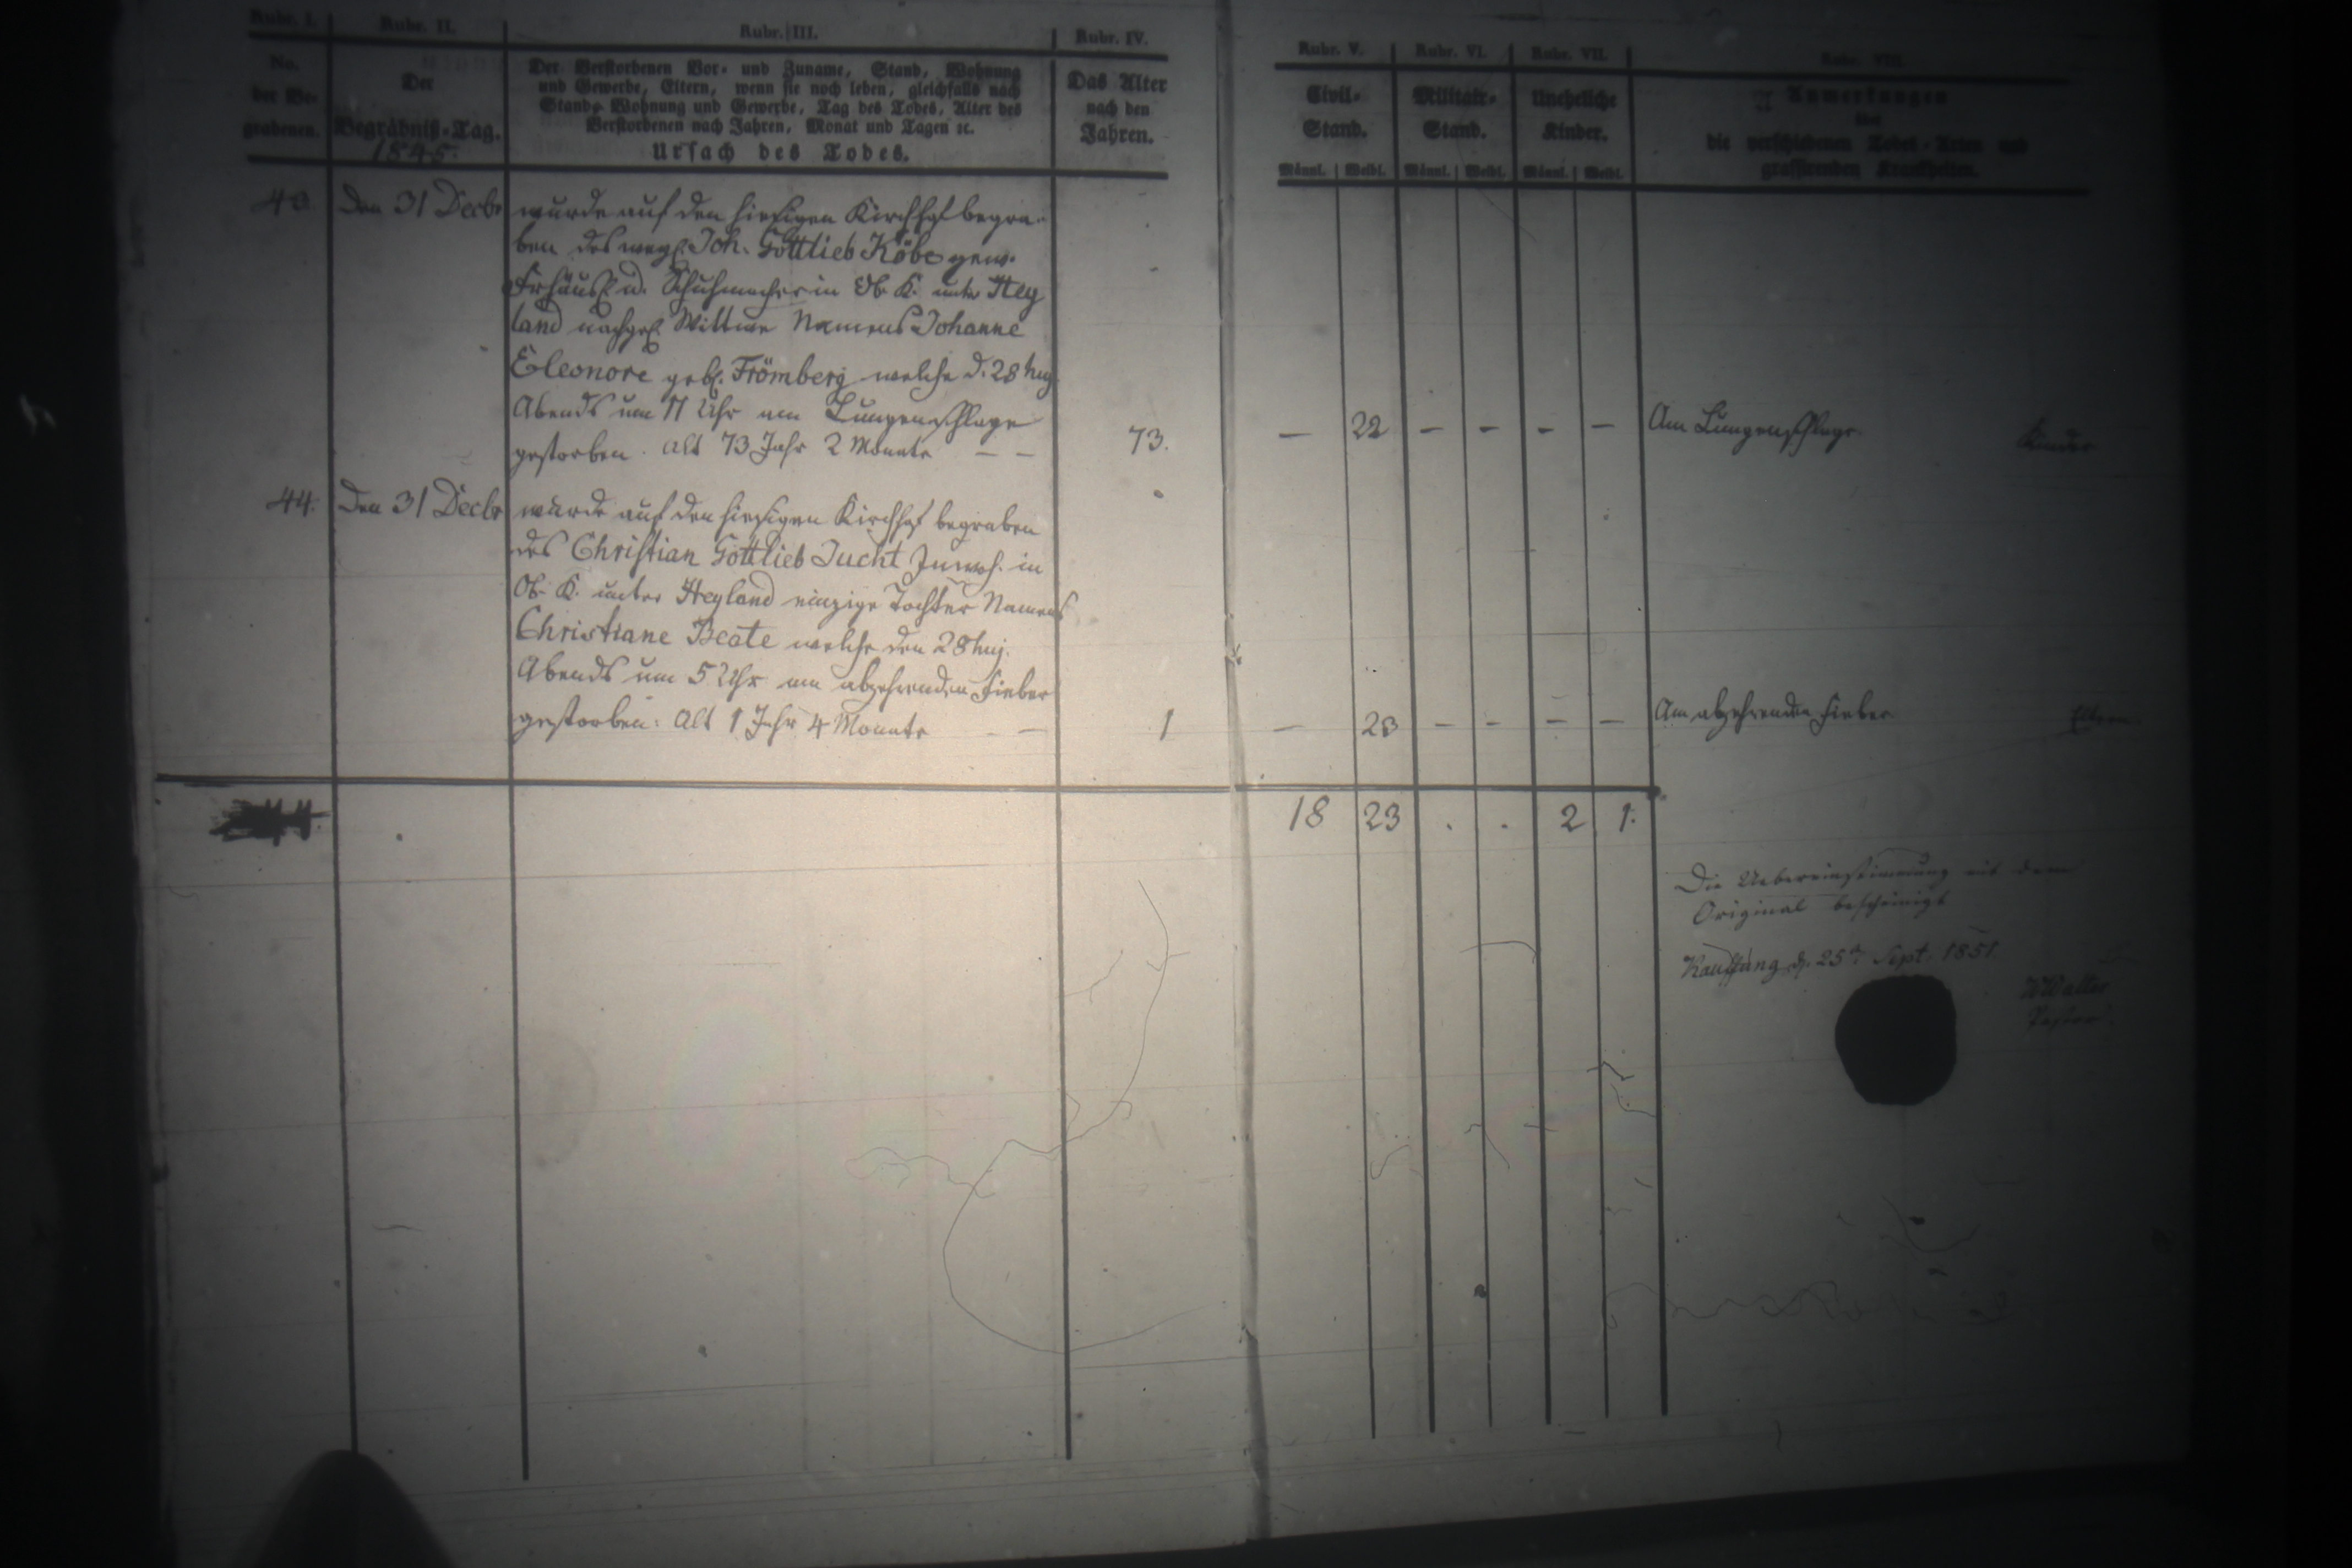 Rubr. I. Rubr. II. Rubr. III. Rubr. IV. Rubr. V. Rubr. VI. Rubr. VII. Rubr. VIII.
No.
der Be-
grabenen.
Der
Begräbniß-Tag.
1845.
Der Verstorbenen Vor- und Zuname, Stand, Wohnung
und Gewerbe, Eltern, wenn sie noch leben, gleichfalls nach
Stand, Wohnung und Gewerbe, Tag des Todes, Alter des
Verstorbenen nach Jahren, Monat und Tagen ꝛc.
Ursach des Todes.
Das Alter
nach den
Jahren.
Civil-
Stand.
Männl. Weibl.
Militair-
Stand.
Männl. Weibl.
Uneheliche
Kinder.
Männl. Weibl.
Anmerkungen
über
die verschiedenen Todes-Arten und
grassirenden Krankheiten.
43. Den 31 Decbr wurde auf den hiesigen Kirchhof begra-
ben des weyl. Joh. Gottlieb Köbe gew.
Frhäusl. u. Schuhmacher in Ob. K. unter Hey
land nachgel. Wittwe Namens Johanne
Eleonore geb. Frömberg welche d. 28 huj.
Abends um 11 Uhr am Lungenschlage
gestorben. Alt 73 Jahr 2 Monate — —
73. — 22 — — — — Am Lungenschlage. Kinder
44. Den 31 Decbr wurde auf den hiesigen Kirchhof begraben
des Christian Gottlieb Jucht Inwoh. in
Ob. K. unter Heyland einzige Tochter Namens
Christiane Beate welche den 28 huj.
Abends um 5 Uhr am abzehrenden Fieber
gestorben: Alt 1 Jahr 4 Monate — —
1 — 23 — — — — Am abzehrenden Fieber Eltern
18 23 . . 2 1.
Die Uebereinstimmung mit dem
Original bescheinigt
Kauffung d. 25t Sept. 1851.
Walter
Pastor.